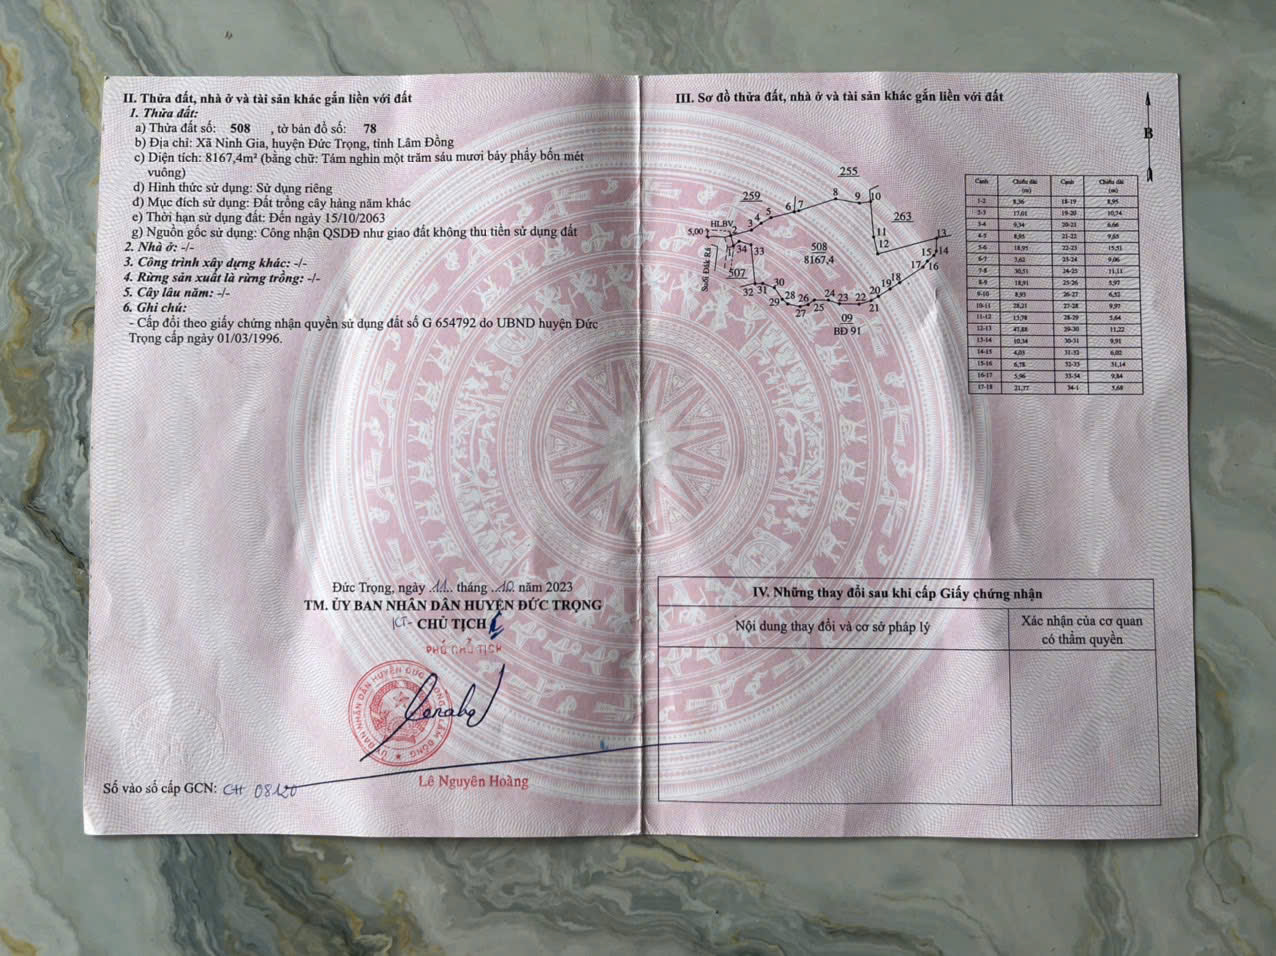 II. Thửa đất, nhà ở và tài sản khác gắn liền với đất
1. Thửa đất:
a) Thửa đất số: 508 , tờ bản đồ số: 78
b) Địa chỉ: Xã Ninh Gia, huyện Đức Trọng, tỉnh Lâm Đồng
c) Diện tích: 8167,4m² (bằng chữ: Tám nghìn một trăm sáu mươi bảy phẩy bốn mét
vuông)
d) Hình thức sử dụng: Sử dụng riêng
đ) Mục đích sử dụng: Đất trồng cây hàng năm khác
e) Thời hạn sử dụng đất: Đến ngày 15/10/2063
g) Nguồn gốc sử dụng: Công nhận QSDĐ như giao đất không thu tiền sử dụng đất
2. Nhà ở: -/-
3. Công trình xây dựng khác: -/-
4. Rừng sản xuất là rừng trồng: -/-
5. Cây lâu năm: -/-
6. Ghi chú:
- Cấp đổi theo giấy chứng nhận quyền sử dụng đất số G 654792 do UBND huyện Đức
Trọng cấp ngày 01/03/1996.
Đức Trọng, ngày 11 tháng 10 năm 2023
TM. ỦY BAN NHÂN DÂN HUYỆN ĐỨC TRỌNG
KT- CHỦ TỊCH
PHÓ CHỦ TỊCH
Lê Nguyên Hoàng
Số vào sổ cấp GCN: CH 08120
III. Sơ đồ thửa đất, nhà ở và tài sản khác gắn liền với đất
B
255
259
8
9
10
6
7
5
4
3
2
HLBV
5,00
1
34
33
263
11
12
13
14
15
16
17
18
19
20
21
22
23
24
25
26
27
28
29
30
31
32
508
8167,4
507
Suối Đắk Rá
09
BĐ 91
Cạnh Chiều dài (m) Cạnh Chiều dài (m)
1-2 8,36 18-19 8,95
2-3 17,01 19-20 10,74
3-4 9,34 20-21 6,66
4-5 21-22 9,65
5-6 18,95 22-23 15,51
6-7 23-24 9,06
7-8 30,51 24-25 11,11
8-9 18,91 25-26 5,97
9-10 8,93 26-27 6,52
10-11 28,21 27-28 9,97
11-12 15,78 28-29 5,64
12-13 29-30 11,22
13-14 10,34 30-31 9,91
14-15 4,03 31-32 6,02
15-16 6,78 32-33 31,14
16-17 5,96 33-34 9,84
17-18 21,77 34-1 5,68
IV. Những thay đổi sau khi cấp Giấy chứng nhận
Nội dung thay đổi và cơ sở pháp lý
Xác nhận của cơ quan
có thẩm quyền